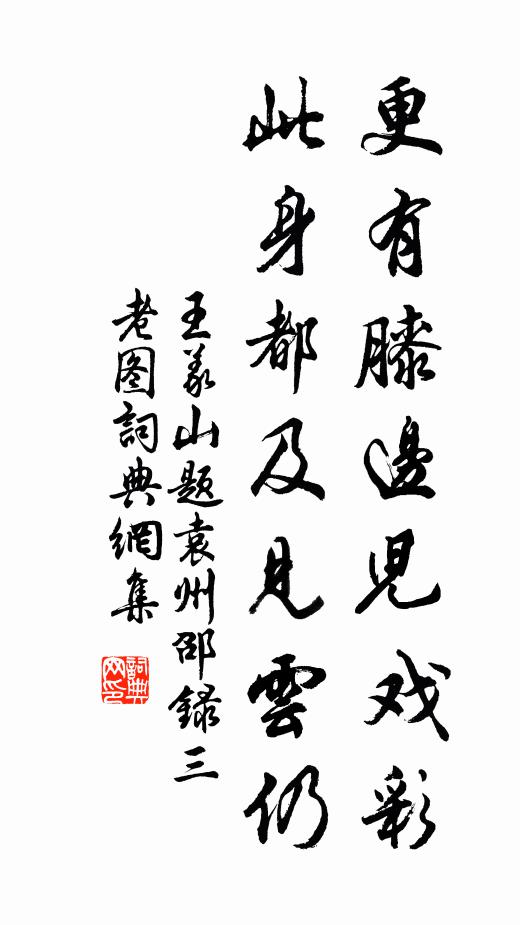 更有膝邊児戏彩
此身都及見雲仍
王义山題袁州邵録三
老图詞典網集
詞典网印